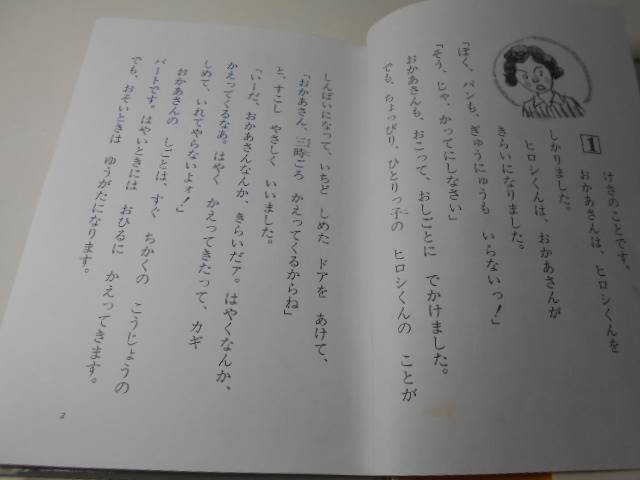 1
けさのことです。
おかあさんは、ヒロシくんを
しかりました。
ヒロシくんは、おかあさんが
きらいになりました。
「ぼく、パンも、ぎゅうにゅうも いらないっ!」
「そう、じゃ、かってにしなさい」
おかあさんも、おこって、おしごとに でかけました。
でも、ちょっぴり、ひとりっ子の ヒロシくんの ことが
しんぱいになって、いちど しめた ドアを あけて、
「おかあさん、三時ごろ かえってくるからね」
と、すこし やさしく いいました。
「いーだ、おかあさんなんか、きらいだァ。はやくなんか、
かえってくるなあ。はやく かえってきたって、カギ
しめて、いれてやらないよォ!」
おかあさんの しごとは、すぐ ちかくの こうじょうの
パートです。はやいときには おひるに かえってきます。
でも、おそいときは ゆうがたになります。
2